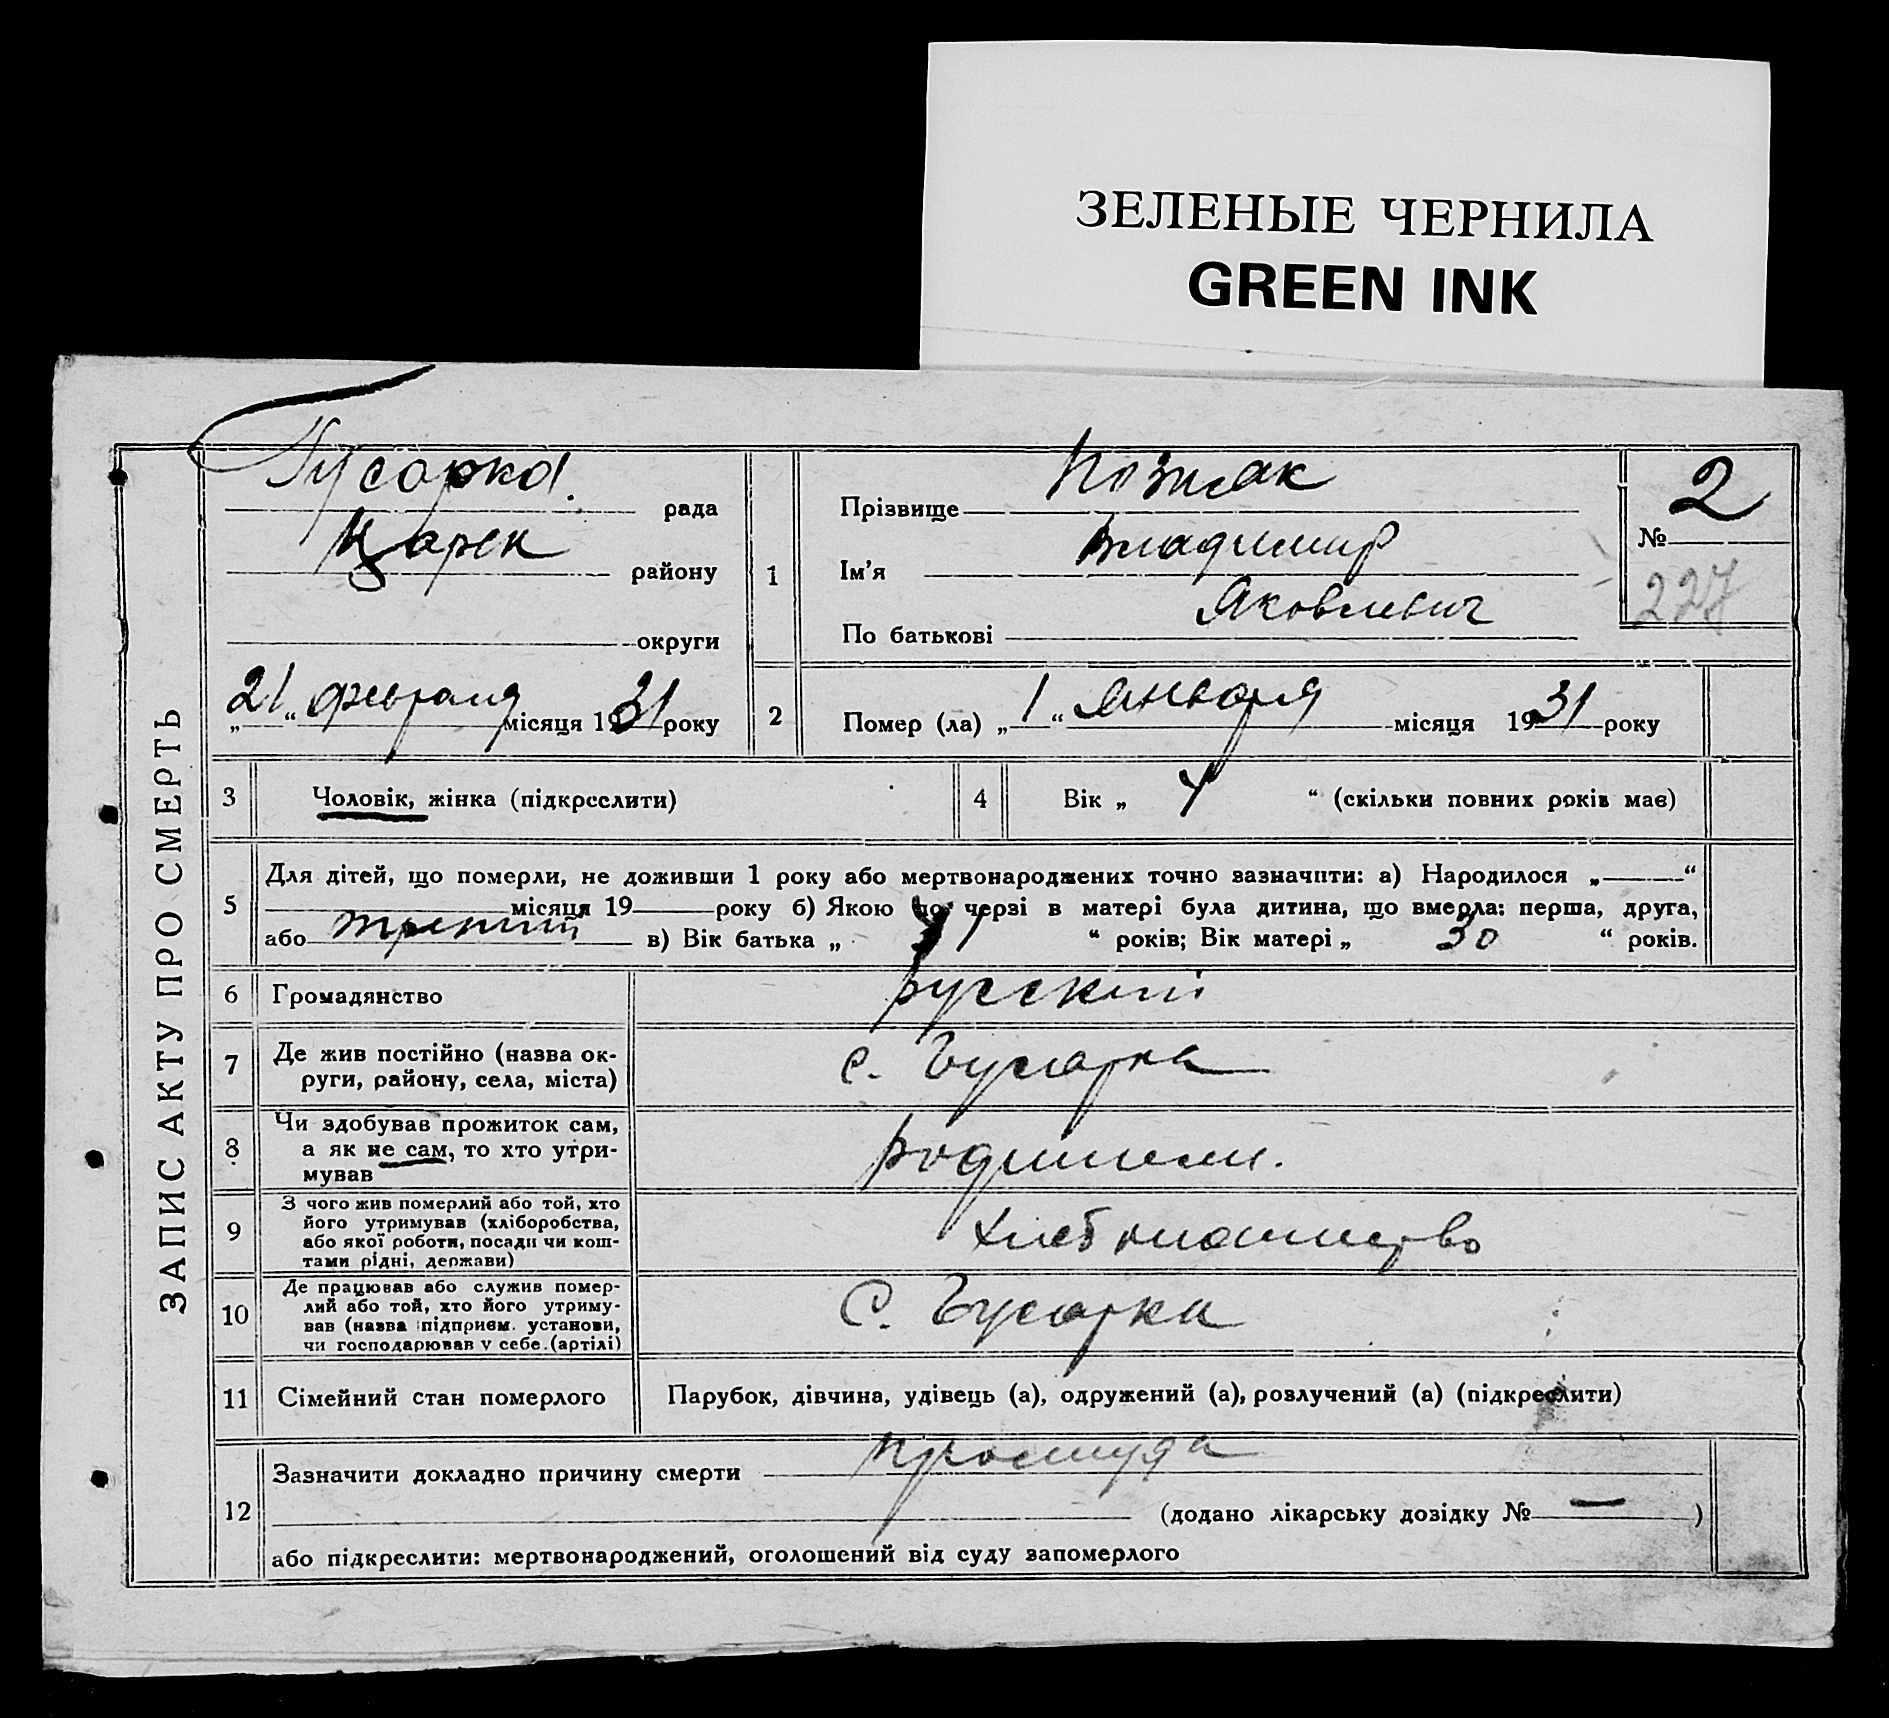 ЗЕЛЕНЫЕ ЧЕРНИЛА
GREEN INK
ЗАПИС АКТУ ПРО СМЕРТЬ
Гусарка рада
Царек району
округи
„21“ февраля місяця 1931 року
1
Прізвище Позняк
Ім'я Владимир
По батькові Яковлевич
№ 2
227
2 Помер (ла) „1“ Января місяця 1931 року
3 Чоловік, жінка (підкреслити)
4 Вік „ “ (скільки повних років має)
5 Для дітей, що померли, не доживши 1 року або мертвонароджених точно зазначити: а) Народилося „ “
місяця 19 року б) Якою по черзі в матері була дитина, що вмерла: перша, друга,
або третий в) Вік батька „ “ років; Вік матері „30“ років.
6 Громадянство русский
7 Де жив постійно (назва ок-
руги, району, села, міста)
с. Гусарка
8 Чи здобував прожиток сам,
а як не сам, то хто утри-
мував
родители.
9 З чого жив померлий або той, хто
його утримував (хліборобства,
або якої роботи, посади чи кош-
тами рідні, держави)
хлебопашество
10 Де працював або служив помер-
лий або той, хто його утриму-
вав (назва підприєм. установи,
чи господарював у себе.(артілі)
С. Гусарка
11 Сімейний стан померлого Парубок, дівчина, удівець (а), одружений (а), розлучений (а) (підкреслити)
12 Зазначити докладно причину смерти простуда
(додано лікарську довідку № — )
або підкреслити: мертвонароджений, оголошений від суду запомерлого